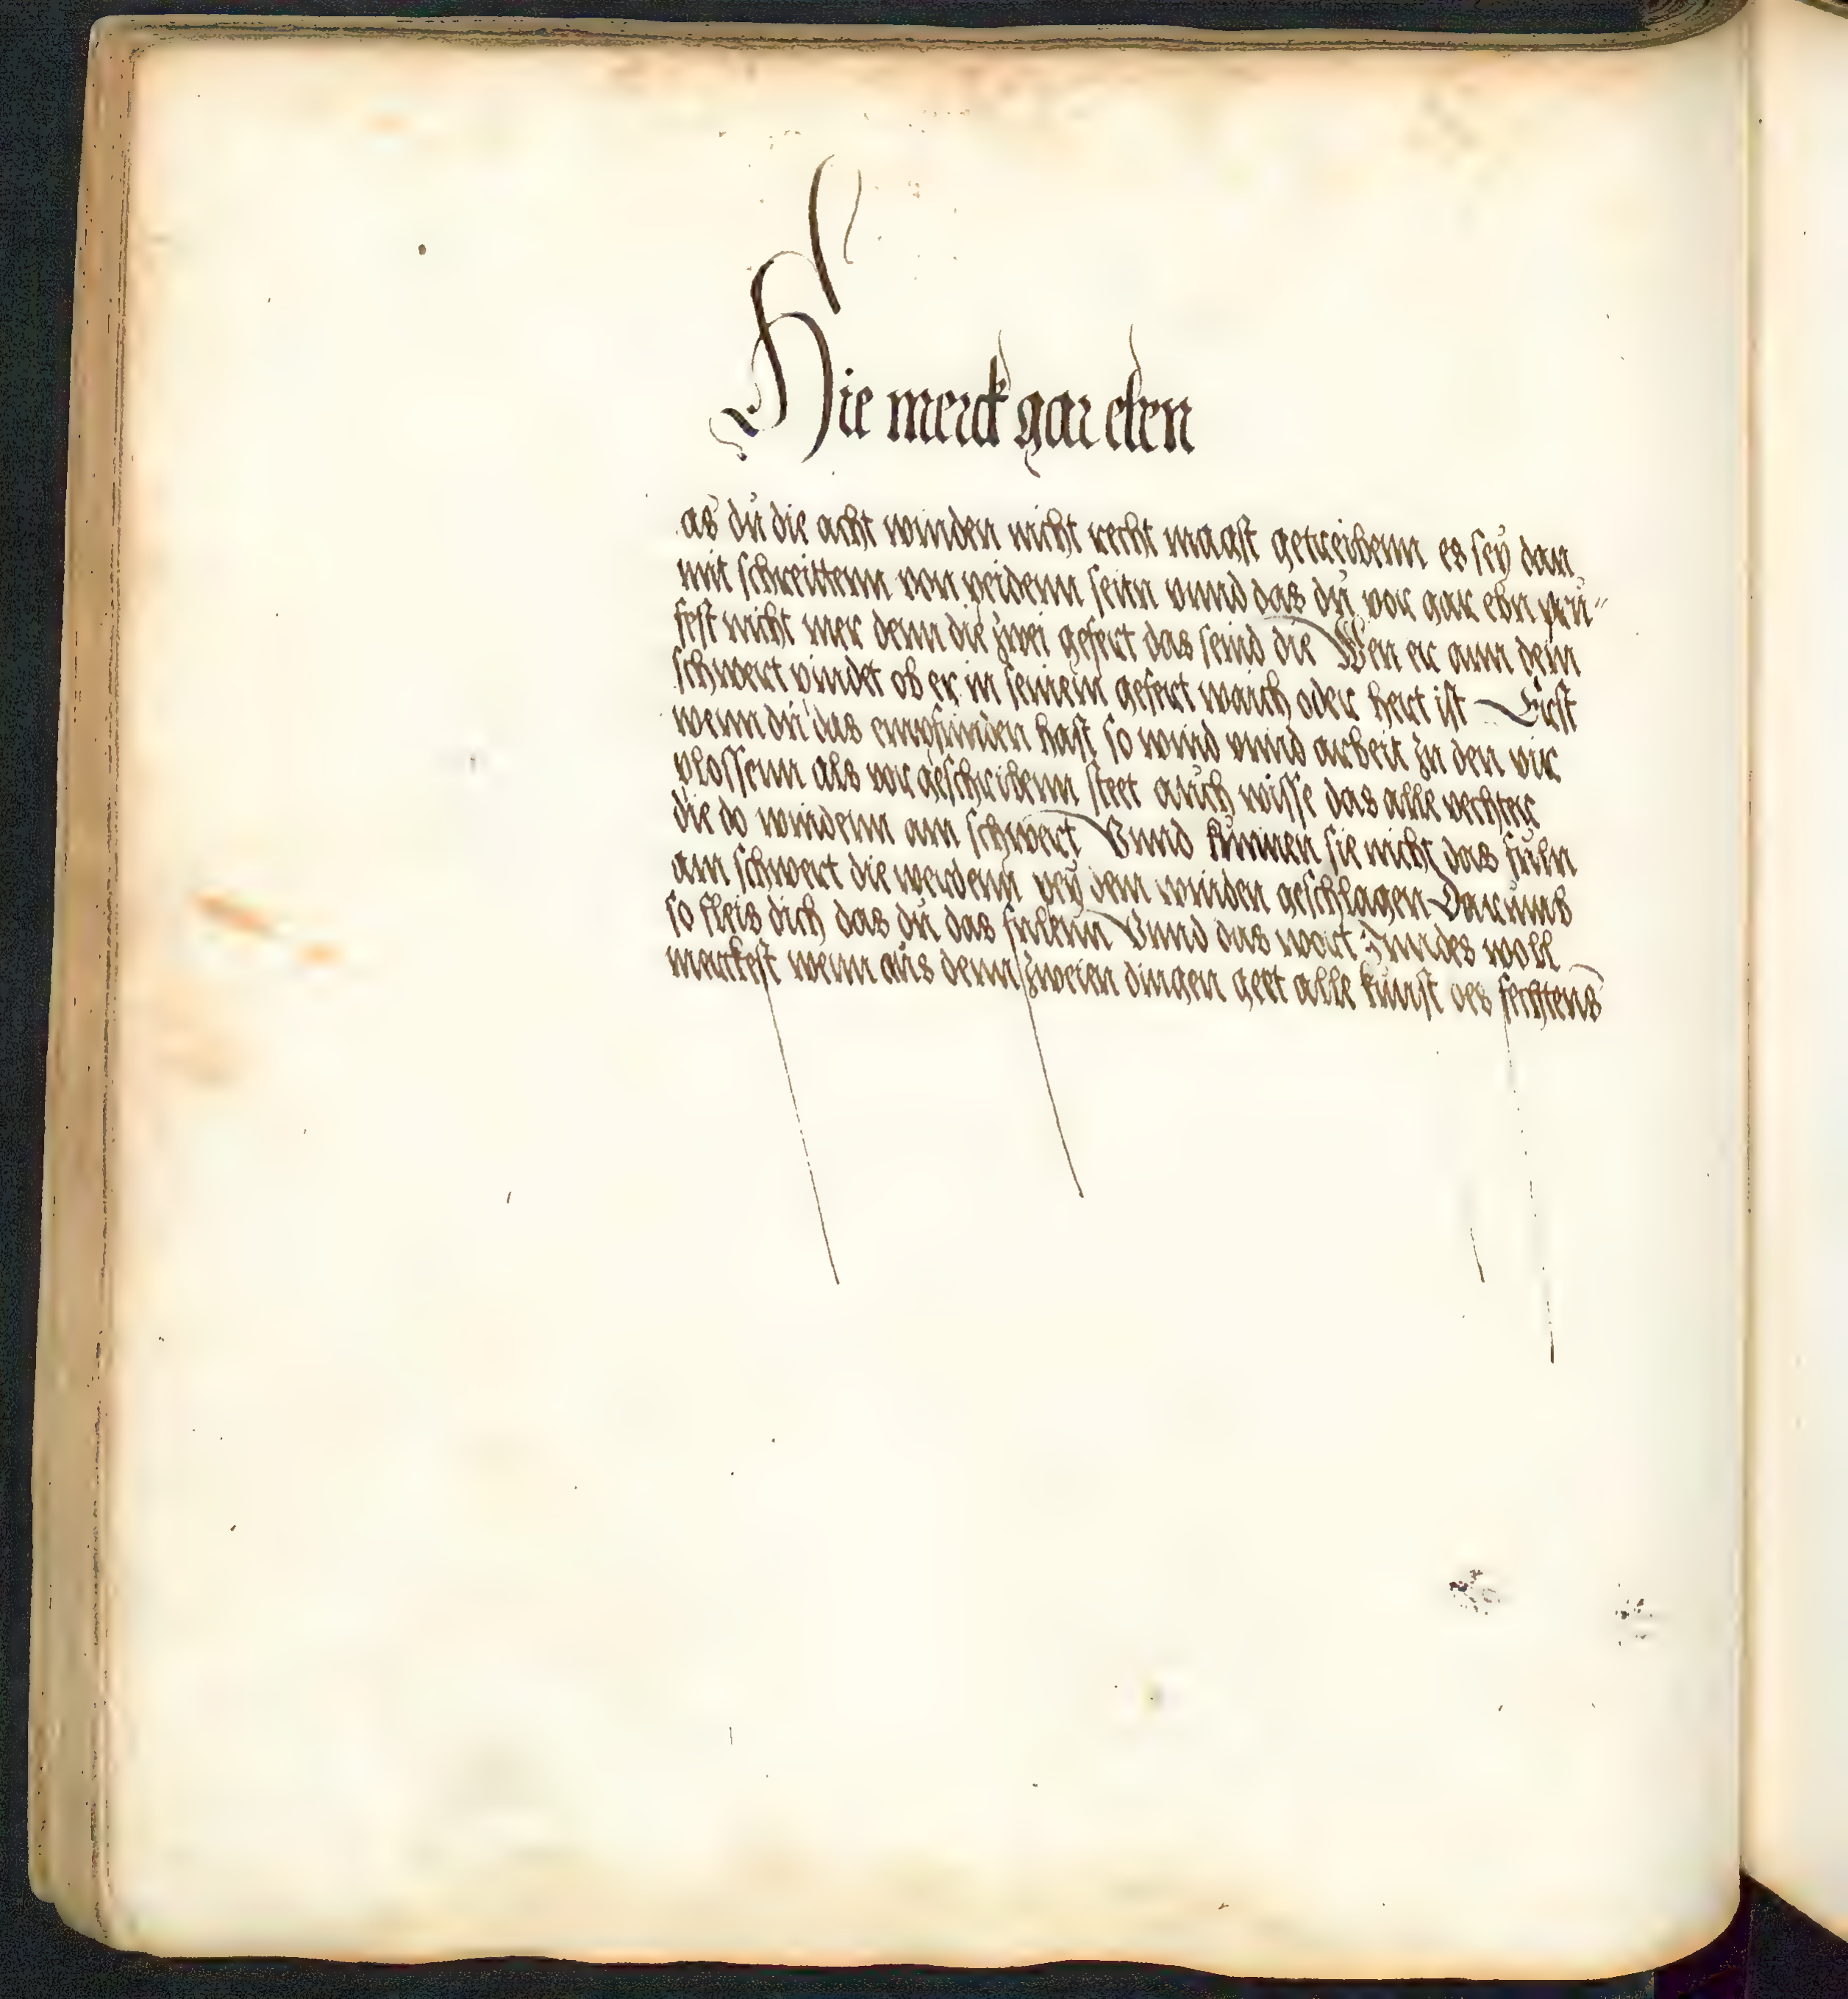 Hie merck gar eben
as du die acht winden nicht recht magst getreibenn es sey dan
mit schreittenn von peidenn seitn vnnd das du vor gar ebn prü-
fest nicht mer denn die zwei gefert das seind die Wen er ann dem
schwert vindet ob er in seinem gefert waich oder hert ist Erst
wenn du das empfunden hast so wind vnnd arbeit zu den vir
plossenn als vor geschribenn steet auch wisse das alle vechter
die do windenn am schwert Vnnd kunnen sie nicht das fuln
am schwert die werdenn pey dem winden geschlagen Darumb
so fleis dich das du das fulenn Vnnd das wort Inndes woll
merckest wenn aus denn zweien dingen geet alle kunst des fechtens